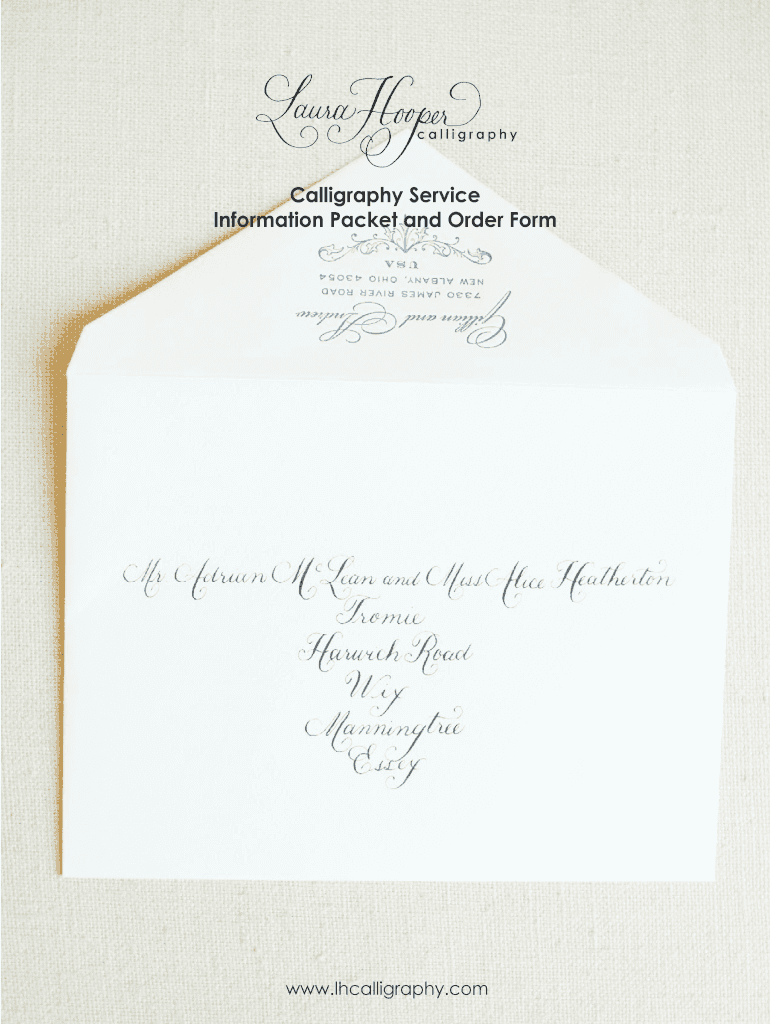 Laura Hooper
calligraphy
Calligraphy Service
Information Packet and Order Form
Gillian and Andrew
7330 JAMES RIVER ROAD
NEW ALBANY, OHIO 43054
USA
Mr Adrian McLean and Miss Alice Heatherton
Tromie
Harwich Road
Wix
Manningtree
Essex
www.lhcalligraphy.com